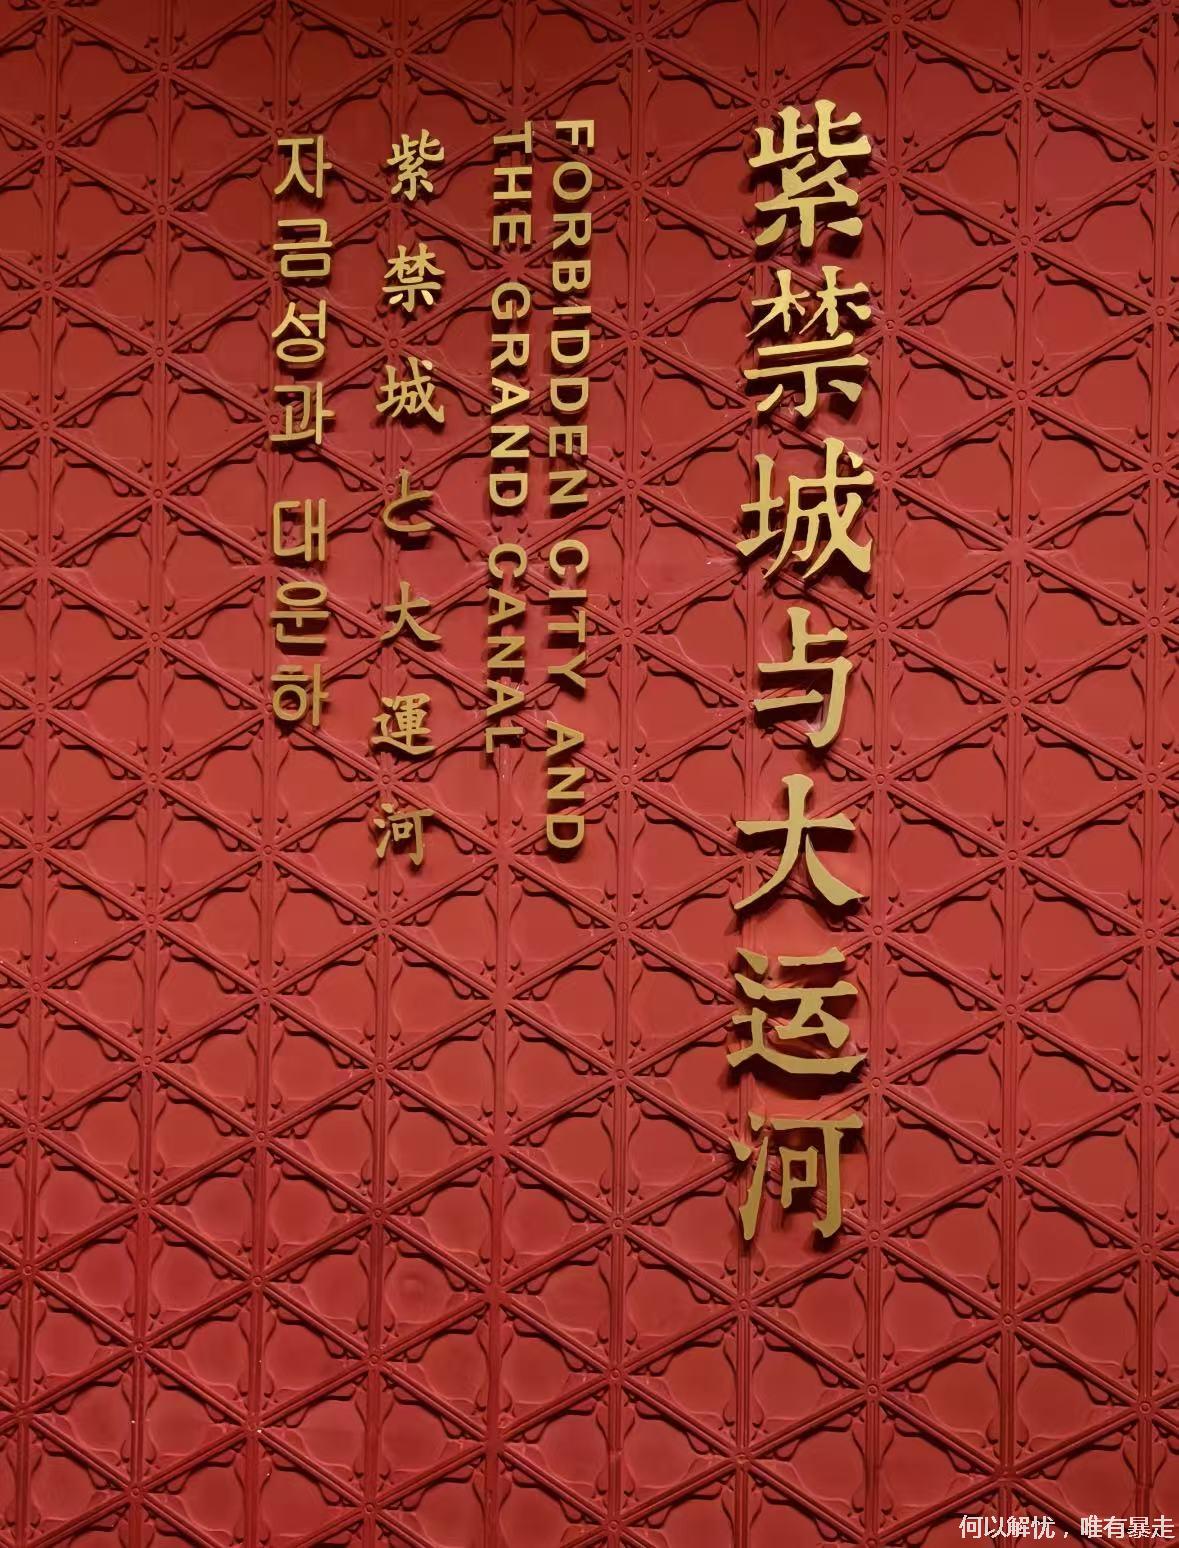 紫禁城与大运河
FORBIDDEN CITY AND
THE GRAND CANAL
紫禁城と大運河
자금성과 대운하
何以解忧，唯有暴走